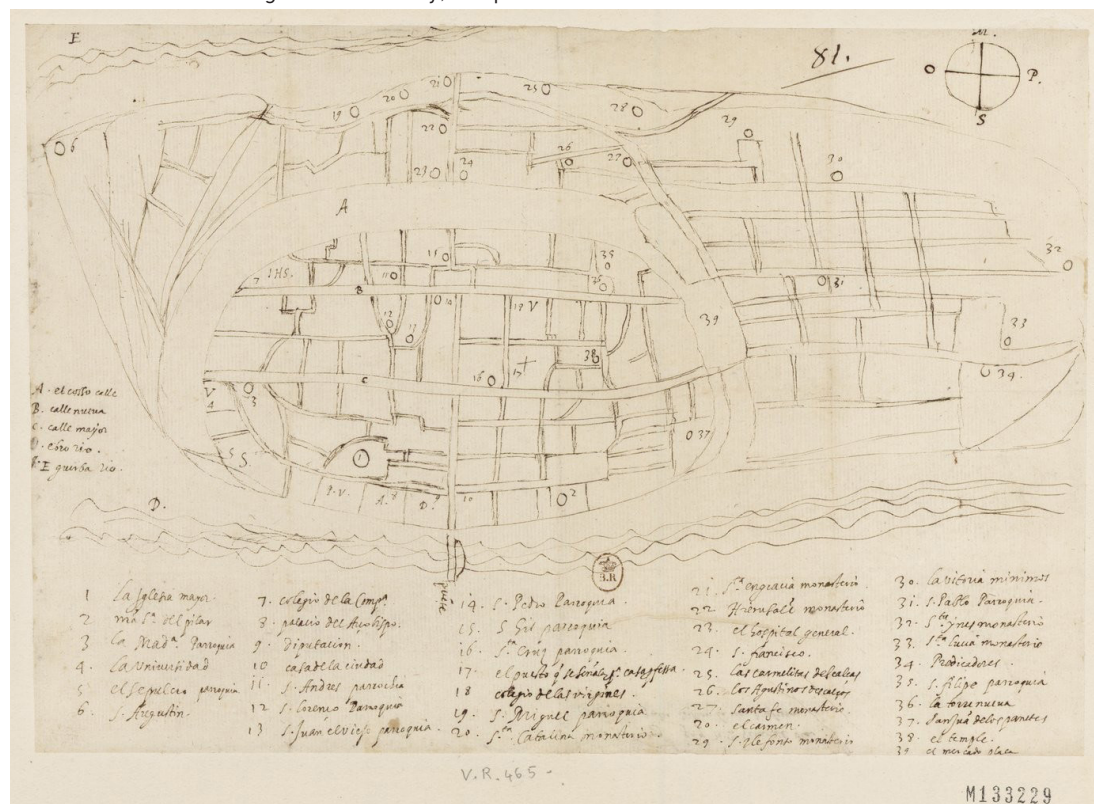 E
81.
M.
O
P.
S
6
19
20
21
22
23
24
25
28
26
27
29
30
A
32
7 IHS.
11
15
35
36
31
B
12
13
14
18 V
39
33
38
34.
16
17
C
V
3
4
A. el cosso calle
B. calle nueua
C. calle mayor
D. ebro rio.
E guerba rio.
5 S
1
37
P. V.
A. 8
D. 9
10
2
D.
B.R
1 la Iglesia mayor.
2 nra Sra. del pilar
3 la Mada. Parroquia
4. la Vniuersidad
5 el sepulcro parroquia
6. S. Augustin.
7. colegio de la Compa.
8. palacio del Arcobispo.
9. Diputacion.
10 casa de la ciudad
11. S. Andres parrochia
12 S. Lorenco Parroquia
13 S. Juan el viejo parroquia.
14. S. Pedro Parroquia.
15. S Gil parroquia
16. Sta. Cruz parroquia.
17 el puesto q se señala pa. casa professa
18 colegio de las virgines.
19. S. Miguel parroquia.
20. Sta. Catalina monasterio
21. Sta. engracia monasterio
22 Hierusale monasterio
23. el hospital general.
24. S. francisco.
25. las carmelitas descalcas
26. los Agustinos descalços
27 santa fe monasterio.
20. el carmen.
29 S. Ilefonso monasterio
30. la vitoria minimos
31. S. Pablo Parroquia.
32. Sta. ynes monasterio
33. Sta. lucia monasterio
34 Predicadores.
35. S. filipe parroquia
36 la torre nueua
37. San Jua de los panetes
38. el temple.
39 el mercado plaça
V.R. 465-
M133229